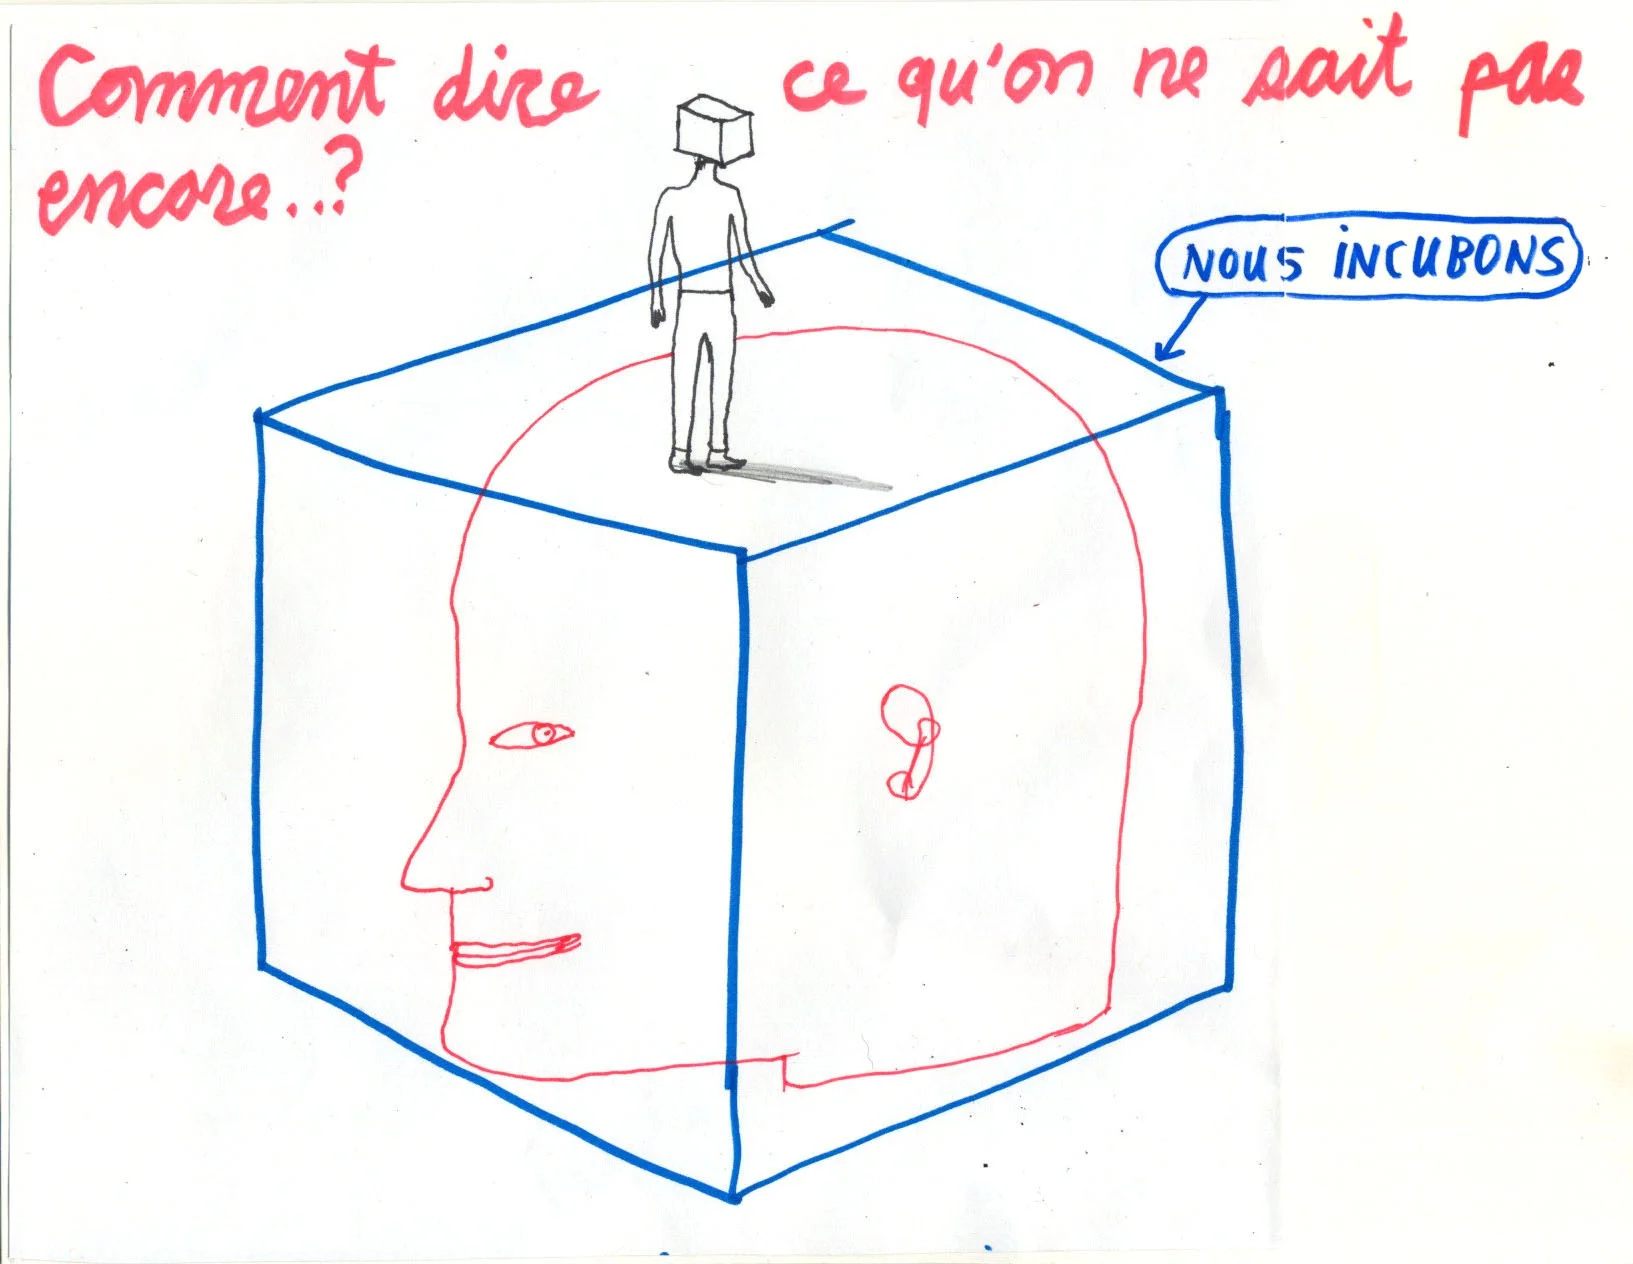 Comment dire ce qu'on ne sait pas
encore..?
NOUS INCUBONS